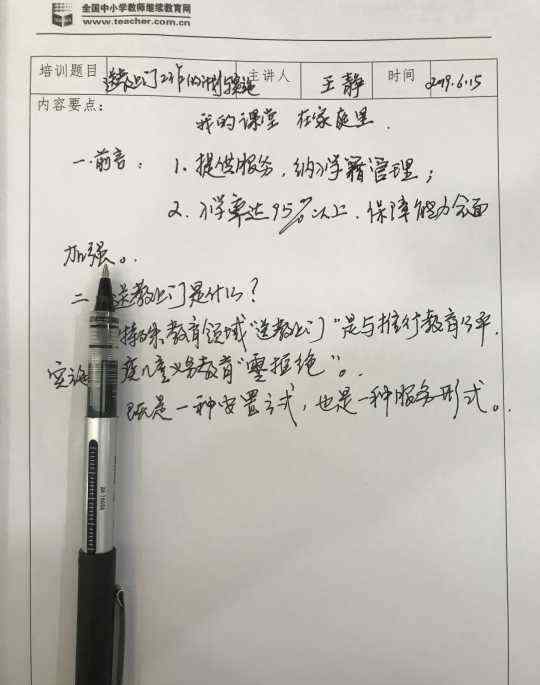 全国中小学教师继续教育网
www.teacher.com.cn
培训题目 送教上门工作的计划与实施 主讲人 王静 时间 2019.6.15
内容要点：
我的课堂 在家庭里.
一.前言： 1. 提供服务，纳入学籍管理；
2. 入学率达95%以上. 保障能力全面
加强。
二 送教上门是什么？
特殊教育领域"送教上门"是与推行教育公平.
实施 度儿童义务教育"零拒绝"。
既是一种安置方式，也是一种服务形式。